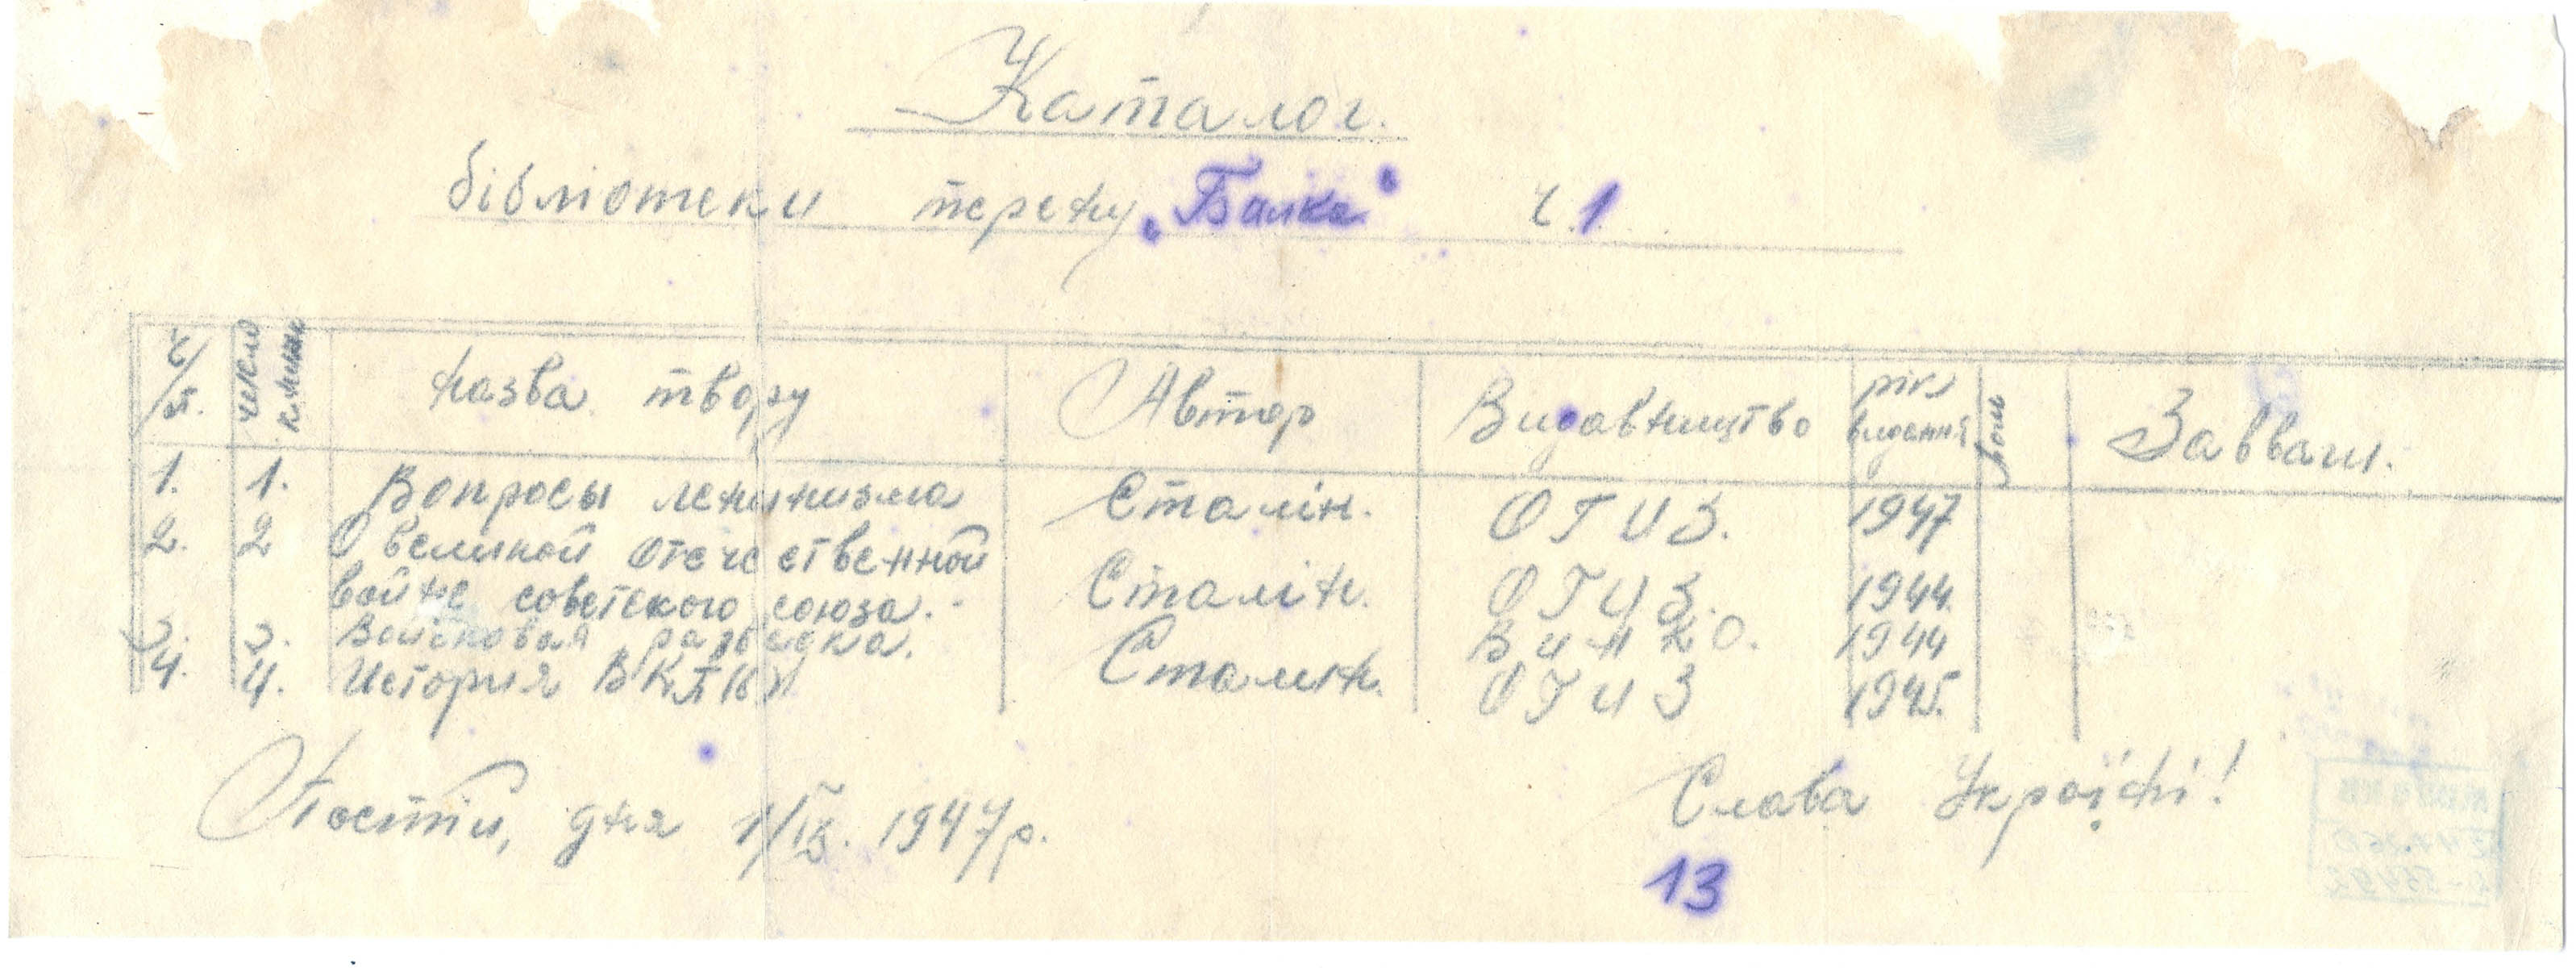 Каталог.
бібліотеки терену „Балка" ч. 1.
ч/п. число книж назва твору Автор Видавництво рік видання том Завваги.
1. 1. Вопросы ленинизма Сталін. ОГИЗ. 1947
2. 2 О великой отечественной
войне советского союза. Сталін. ОГИЗ. 1944.
3. 3. Войсковая разведка. 1944
4. 4. История ВКП(б) Сталін. ОГИЗ 1945.
Постій, дня 1/ІХ. 1947 р. Слава Україні!
13